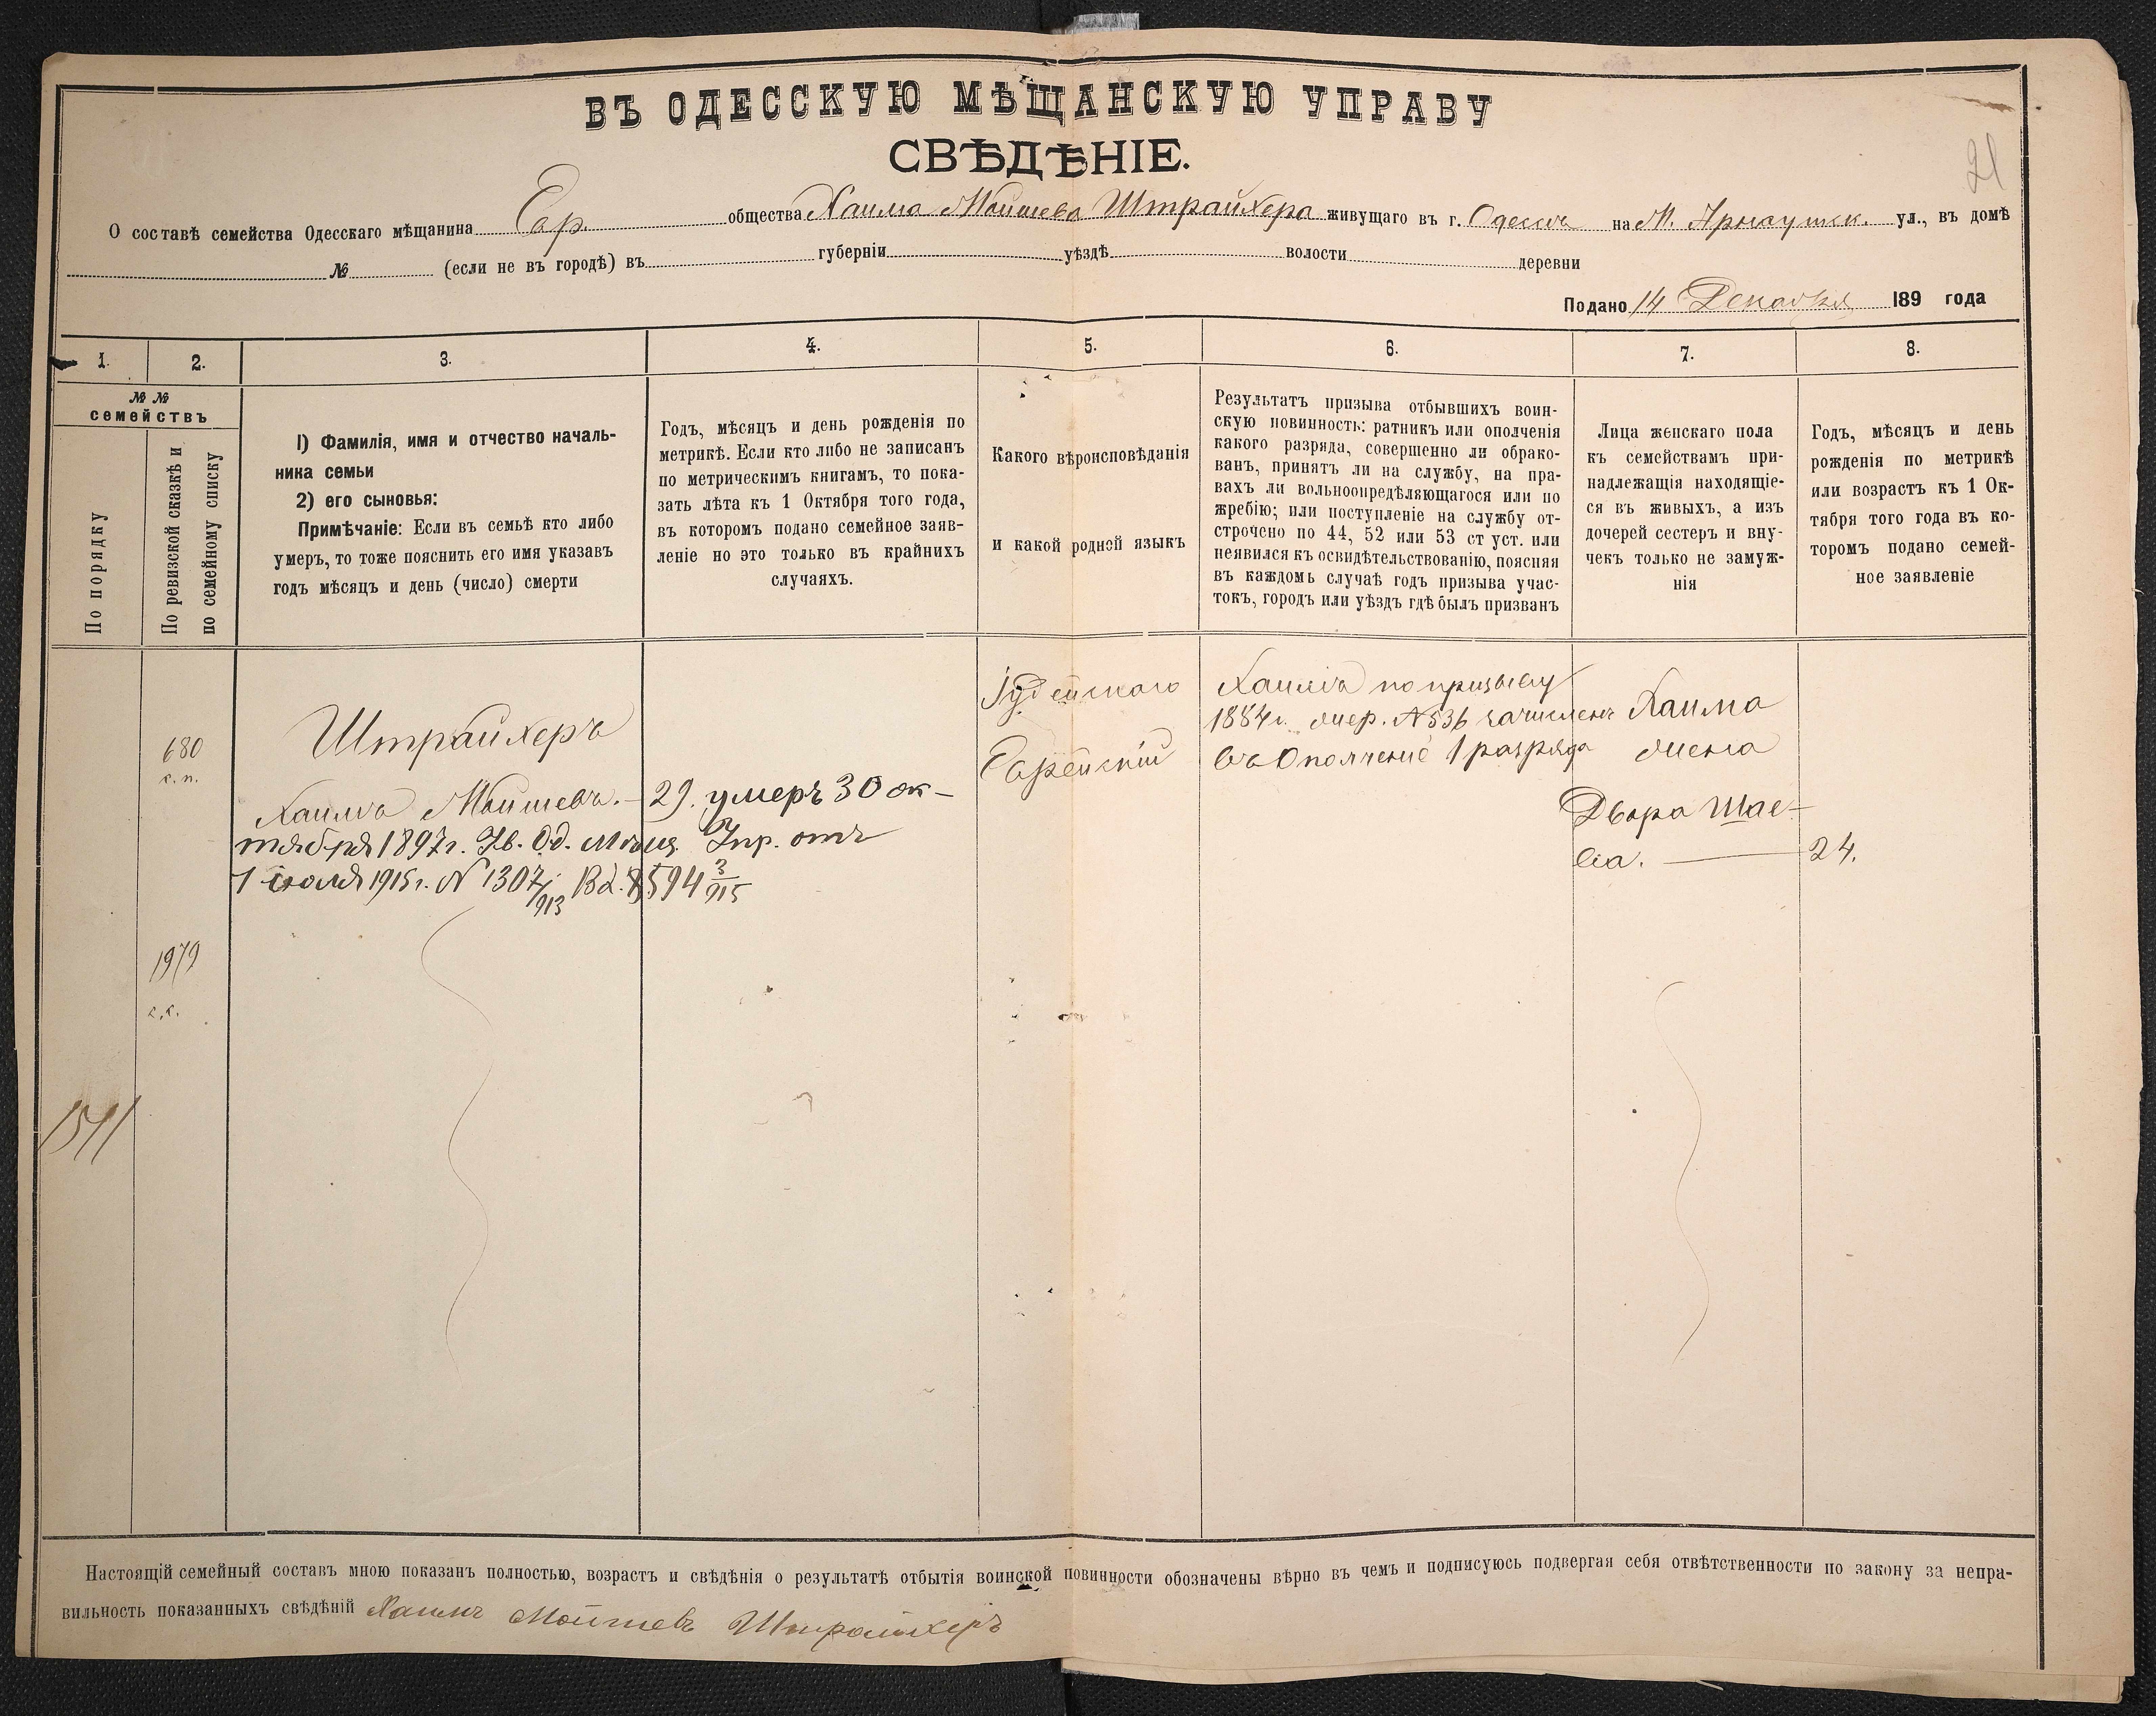 ВЪ ОДЕССКУЮ МѢЩАНСКУЮ УПРАВУ
СВѢДѢНІЕ.
21
О составѣ семейства Одесскаго мѣщанина Евр. общества Хаима Мойшева Штрайхера живущаго въ г. Одессѣ на М. Арнаутск. ул., въ домѣ
№ (если не въ городѣ) въ губерніи уѣздѣ волости деревни
Подано 14 Декабря 189 года
1.
2.
3.
4.
5.
6.
7.
8.
№ №
семействъ
По порядку
По ревизской сказкѣ и
по семейному списку
1) Фамилія, имя и отчество началь-
ника семьи
2) его сыновья:
Примѣчаніе: Если въ семьѣ кто либо
умеръ, то тоже пояснить его имя указавъ
годъ мѣсяцъ и день (число) смерти
Годъ, мѣсяцъ и день рожденія по
метрикѣ. Если кто либо не записанъ
по метрическимъ книгамъ, то пока-
зать лѣта къ 1 Октября того года,
въ которомъ подано семейное заяв-
леніе но это только въ крайнихъ
случаяхъ.
Какого вѣроисповѣданія
и какой родной языкъ
Результатъ призыва отбывшихъ воин-
скую повинность: ратникъ или ополченія
какого разряда, совершенно ли обрако-
ванъ, принятъ ли на службу, на пра-
вахъ ли вольноопредѣляющагося или по
жребію; или поступленіе на службу от-
строчено по 44, 52 или 53 ст уст. или
неявился къ освидѣтельствованію, поясняя
въ каждомъ случаѣ годъ призыва учас-
токъ, городъ или уѣздъ гдѣ былъ призванъ
Лица женскаго пола
къ семействамъ при-
надлежащія находящіе-
ся въ живыхъ, а изъ
дочерей сестеръ и вну-
чекъ только не замуж-
нія
Годъ, мѣсяцъ и день
рожденія по метрикѣ
или возрастъ къ 1 Ок-
тября того года въ ко-
торомъ подано семей-
ное заявленіе
680
с. п.
1979
с. с.
1511
Штрайхеръ
Хаимъ Мойшевъ. — 29. умеръ 30 ок-
тября 1897 г. Ув. Од. Мѣщ. Упр. отъ
1 іюля 1915 г. № 1307/913 Вх. 8594 3/915
Іудейскаго
Еврейскій
Хаимъ по призыву
1884 г. жер. № 536 зачисленъ
въ Ополченіе 1 разряда
Хаима
жена
Двора Шае-
ва. — 24.
Настоящій семейный составъ мною показанъ полностью, возрастъ и свѣдѣнія о результатѣ отбытія воинской повинности обозначены вѣрно въ чемъ и подписуюсь подвергая себя отвѣтственности по закону за непра-
вильность показанныхъ свѣдѣній Хаимъ Мойшевъ Штрайхеръ